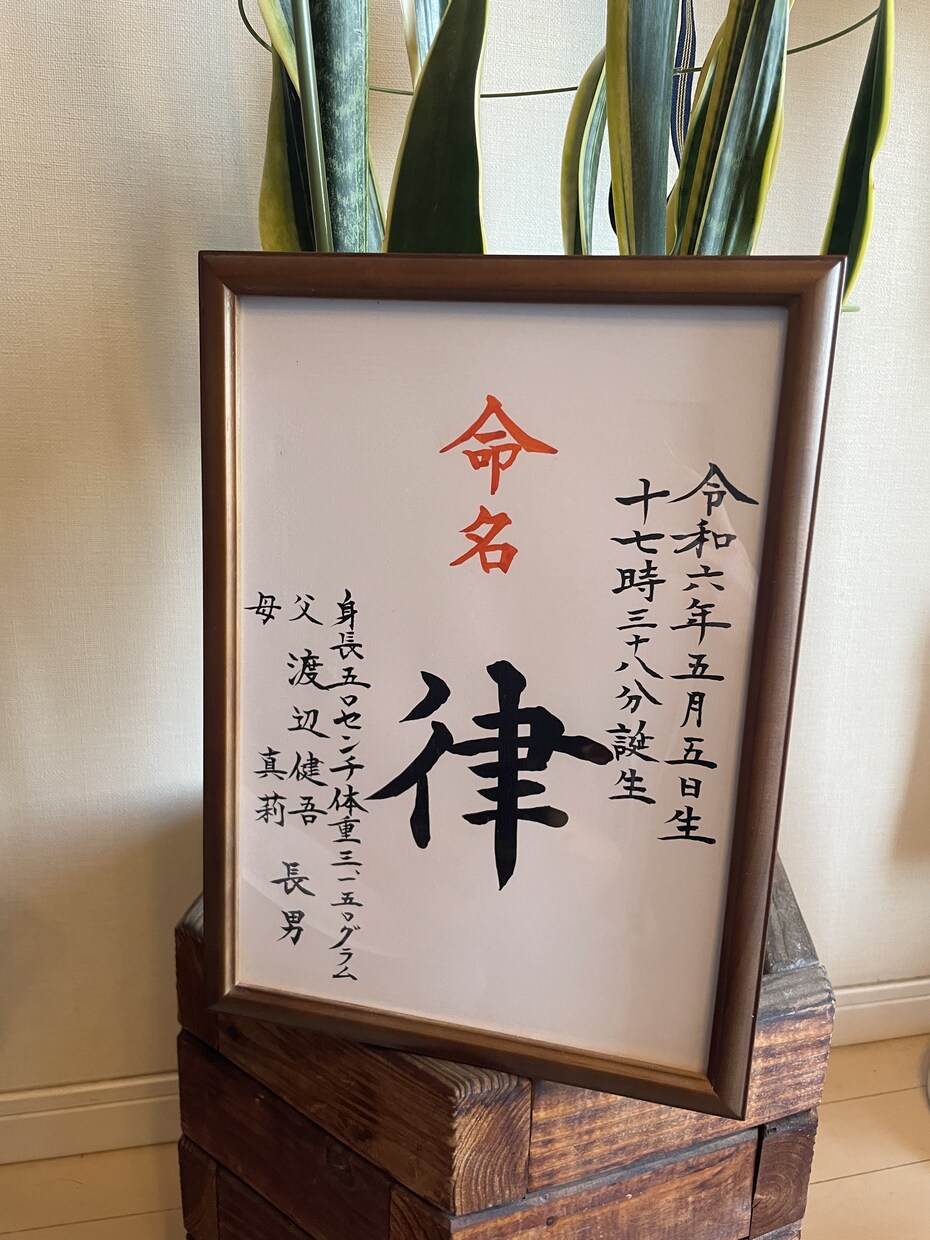 令和六年五月五日生
十七時三十八分誕生
命名
律
身長五〇センチ体重三、一五〇グラム
父 渡辺健吾 長男
母 真莉